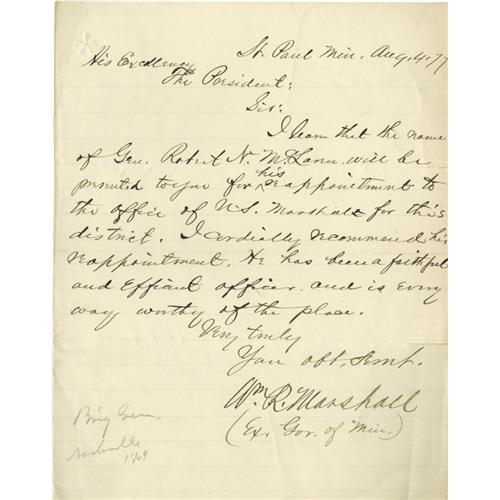 St. Paul Min. Aug. 4, 77
His Excellency
The President:
Sir:
I learn that the name
of Gen. Robert N. McLaren will be
presented to you for his reappointment to
the office of U.S. Marshall for this
district. I cordially recommend his
reappointment. He has been a faithful
and efficient officer and is every
way worthy of the place.
Very truly
Your obt. servt.
Wm. R. Marshall
(Ex. Gov. of Min.)
Brig Gen.
Nashville
1864